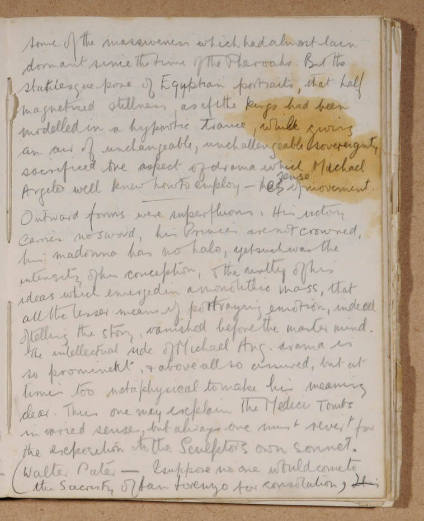 some of the massiveness which had almost lain
dormant since the time of the Pharoahs. But the
statuesque pose of Egyptian portraits, that half
magnetised stillness, as if the Kings had been
modelled in a hypnotic trance, while giving
an air of unchangeable, unchallengeable sovereignty
sacrificed one aspect of drama which Michael
Angelo well knew how to employ — he sense of movement.
Outward forms were superfluous. His victory
carries no sword, his Princes are not crowned,
his madonna has no halo, yet such was the
intensity of his conception, & the unity of his
ideas which emerged in a monolithic mass, that
all the lesser means of portraying emotion, indeed
of telling the story, vanished before the master mind.
The intellectual side of Michael Ang. drama is
so prominent & above all so, but at
times too metaphysical to make his meaning
clear. Thus one may explain the Medici Tombs
in varied sense, but always one must revert for
the exposition to the Sculptor's own sonnet.
(Walter Pater — I suppose no one would come to
the Sacristy of San Lorenzo for consolation, His